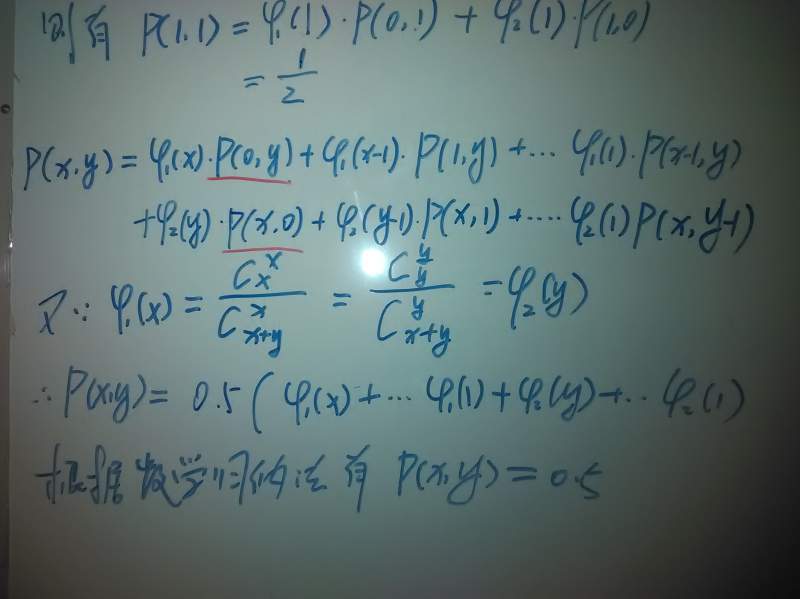 则有 P(1,1) = φ₁(1)·P(0,1) + φ₂(1)·P(1,0)
= 1/2
P(x,y) = φ₁(x)·P(0,y) + φ₁(x-1)·P(1,y) + ··· φ₁(1)·P(x-1,y)
+ φ₂(y)·P(x,0) + φ₂(y-1)·P(x,1) + ···· φ₂(1)P(x,y-1)
又∵ φ₁(x) = C_x^x / C_{x+y}^x = C_y^y / C_{x+y}^y = φ₂(y)
∴ P(x,y) = 0.5 ( φ₁(x) + ··· φ₁(1) + φ₂(y) + ·· φ₂(1)
根据数学归纳法有 P(x,y) = 0.5